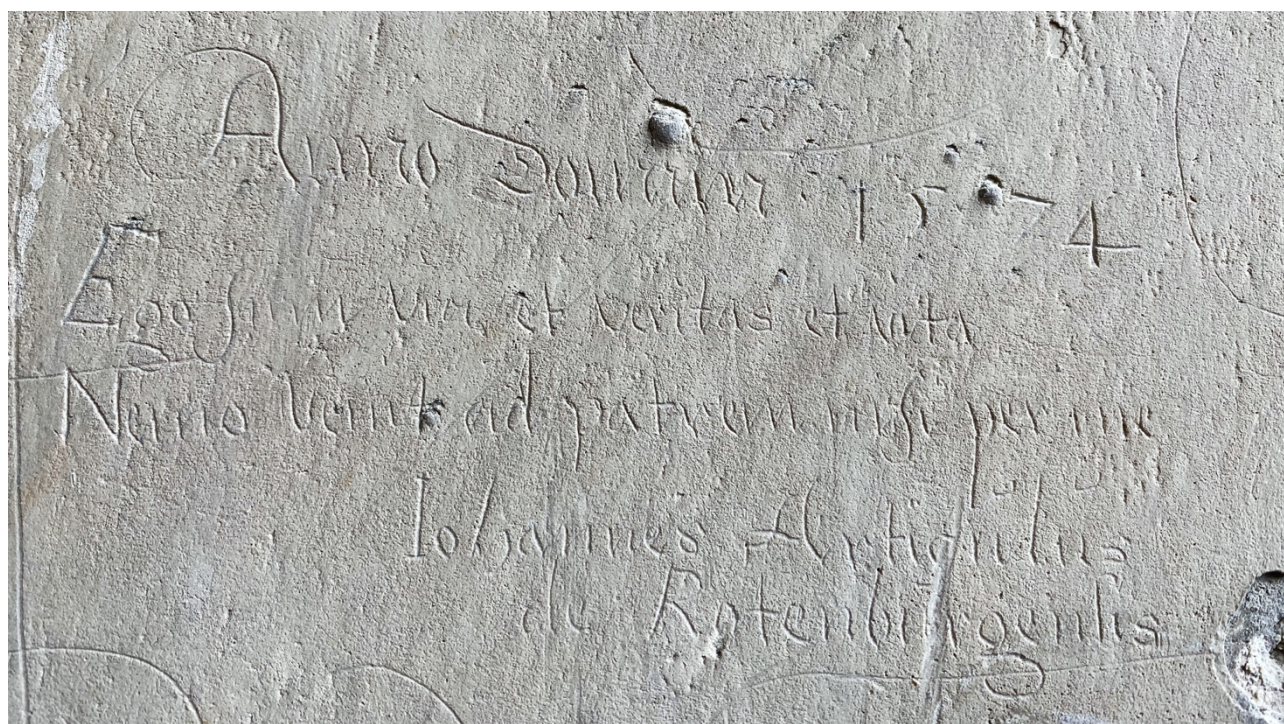 Anno Domini 1574
Ego sum via et veritas et vita
Nemo venit ad patrem nisi per me
Iohannes Articulus
de Rotenburgensis